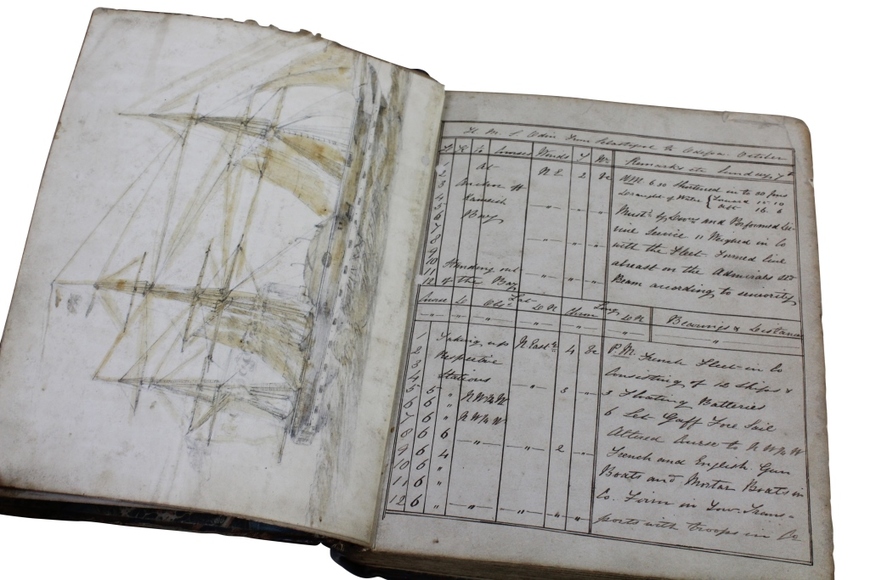 H. M. S Odin From Sebastopol to Odessa October
H K F Courses Winds F We Remarks &c Sunday 7th
1 At N E 2 bc A.M. 6.30 Shortened in to 50 fms
2 Anchor off Draught of Water { Forward 15 10
3 Kamiesh Aft 16. 6
4 Bay Must'd by Div'ns and Performed Di-
5 vine Service 11 Weighed in Co
6 with the Fleet. Formed line
7 abreast on the Admirals
8 Beam according to seniority
9
10
11 Standing out
12 of the Bay
Course Lat Long Bearings & Distance
1 Taking up N East 4 bc P.M. French Fleet in Co
2 Respective Consisting of 10 Ships &
3 Stations 3 Floating Batteries
4 3 6 Set Gaff Fore Sail
5 5 " N W b W Altered Course to N W b W
6 6 " N W b W French and English Gun
7 6 " Boats and Mortar Boats in
8 6 6 2 Co. Firm in Tow. Trans-
9 6 4 ports with troops in Co
10 6 "
11 6 "
12 6 " " " 4 "